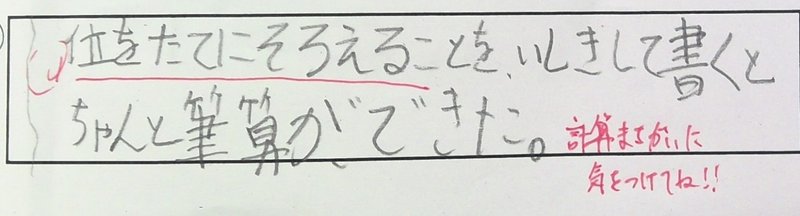 位をたてにそろえることを、いしきして書くと
ちゃんと筆算ができた。
計算まちがいに
気をつけてね!!